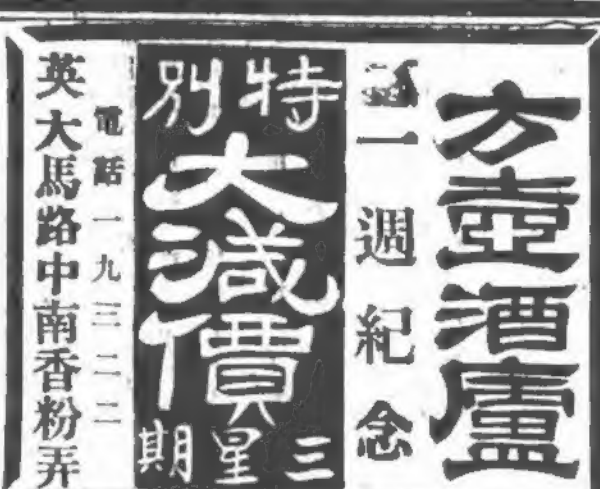 方壺酒廬
一週紀念
特別
大減價
三星期
電話一九三二二
英大馬路中南香粉弄